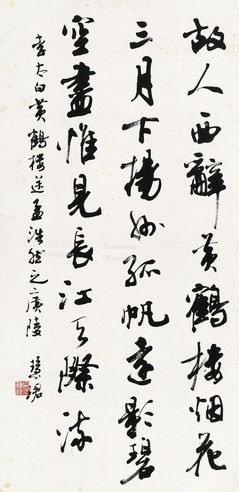 故人西辭黄鶴楼烟花
三月下揚州孤帆遠影碧
空盡惟見長江天際流
李太白黄鶴楼送孟浩然之廣陵 慧珺